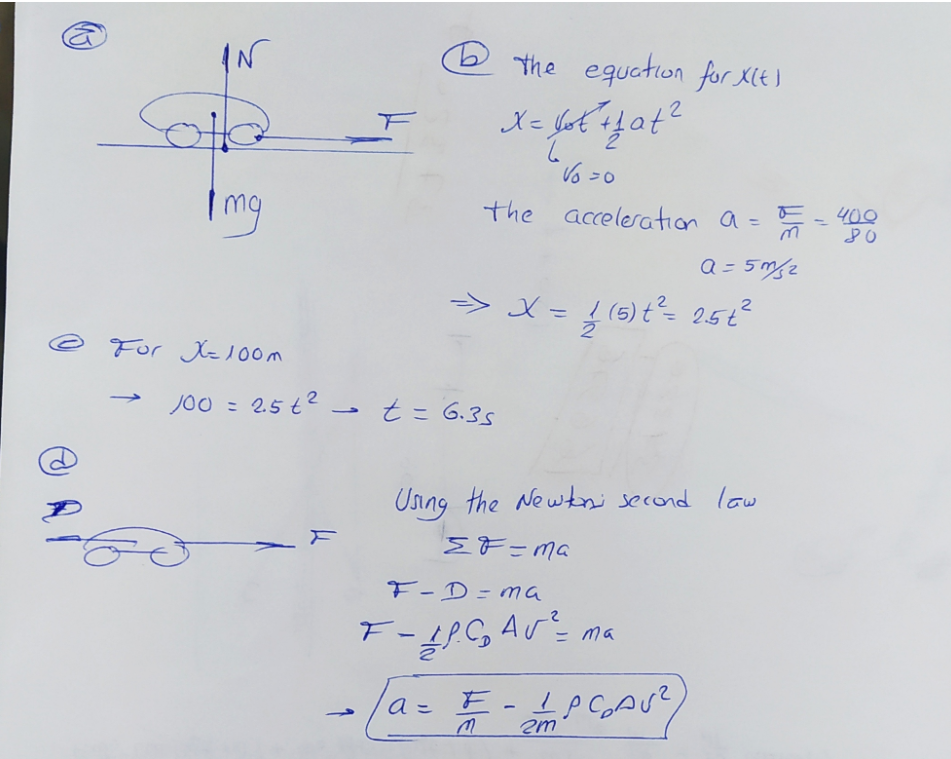 ⓐ
N
F
mg
ⓑ The equation for X(t)
X = v₀t + 1/2 at²
v₀ = 0
The acceleration a = F/m = 400/80
a = 5 m/s²
⇒ X = 1/2 (5)t² = 2.5t²
ⓒ For X=100m
→ 100 = 2.5t² → t = 6.3s
ⓓ
D
F
Using the Newton's second law
ΣF = ma
F - D = ma
F - 1/2 ρ C_D A v² = ma
→ a = F/m - 1/2m ρ C_D A v²